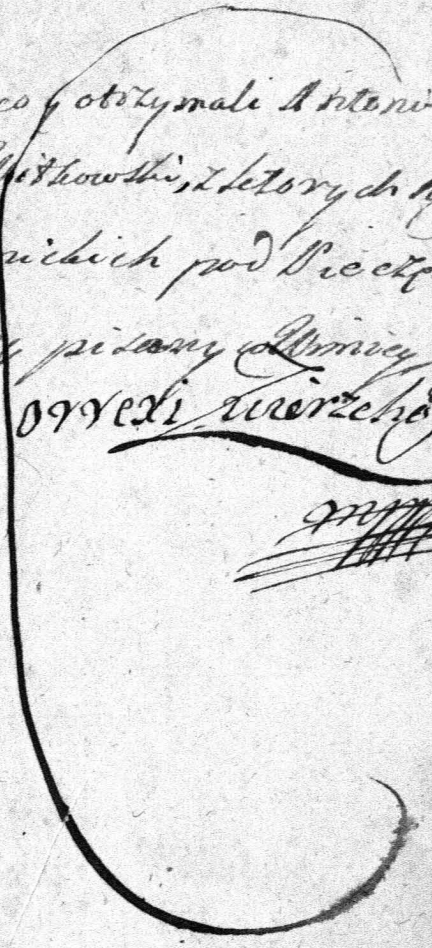 co otrzymali Antoni
witkowski, z ktorych
nickich pod Pieczę
pisany
Correxi Zwierzcho
mp